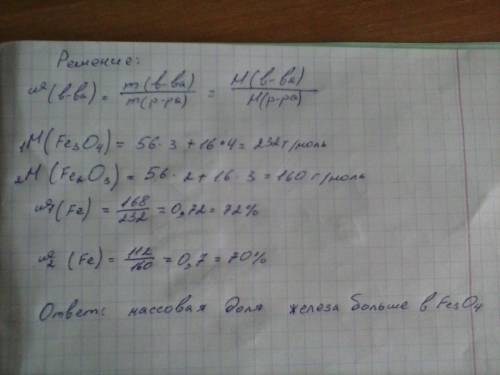 Решение:
ω(в-ва) = m(в-ва)/m(р-ра) = M(в-ва)/M(р-ра)
1M(Fe3O4) = 56·3+16·4 = 232г/моль
2M(Fe2O3) = 56·2+16·3 = 160г/моль
ω1(Fe) = 168/232 = 0,72 = 72%
ω2(Fe) = 112/160 = 0,7 = 70%
Ответ: массовая доля железа больше в Fe3O4